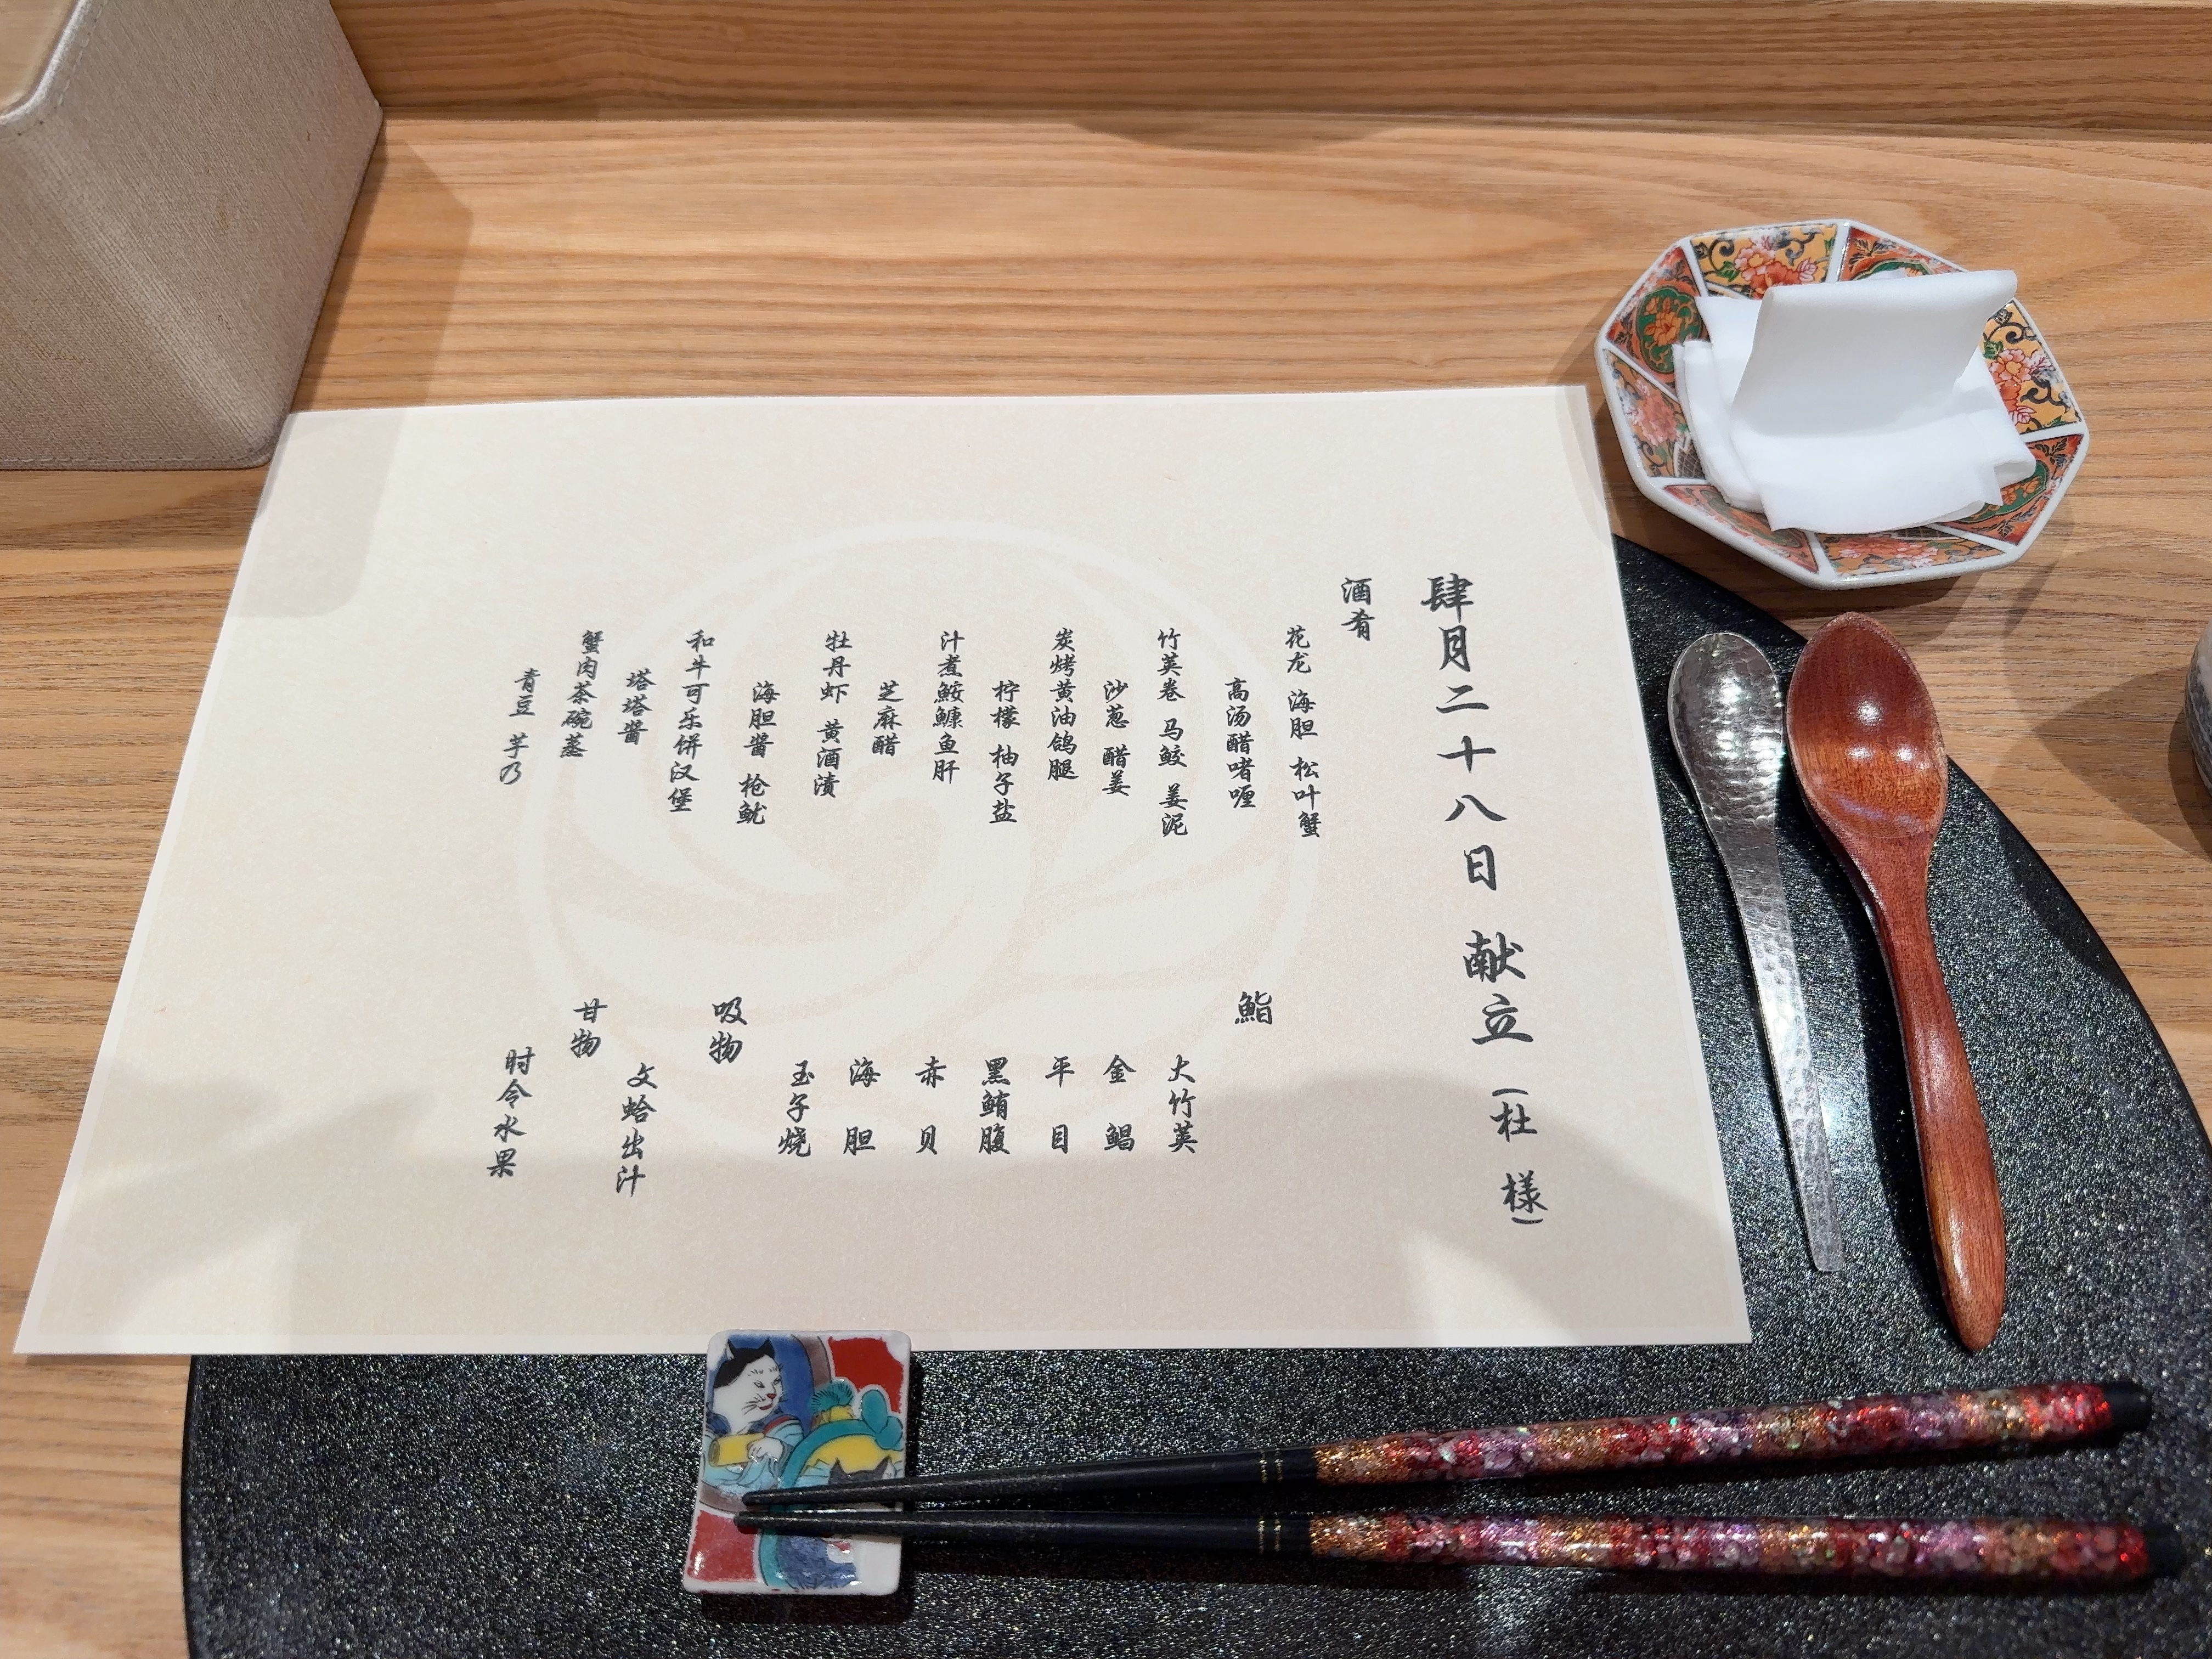 肆月二十八日 献立 (杜 様)
酒肴
花龙 海胆 松叶蟹
高汤醋啫喱
竹荚卷 马鲛 姜泥
沙葱 醋姜
炭烤黄油鸽腿
柠檬 柚子盐
汁煮鮟鱇鱼肝
芝麻醋
牡丹虾 黄酒渍
海胆酱 枪鱿
和牛可乐饼汉堡
塔塔酱
蟹肉茶碗蒸
青豆 芋乃
鮨
大竹荚
金鲳
平目
黑鲔腹
赤贝
海胆
玉子烧
吸物
文蛤出汁
甘物
时令水果